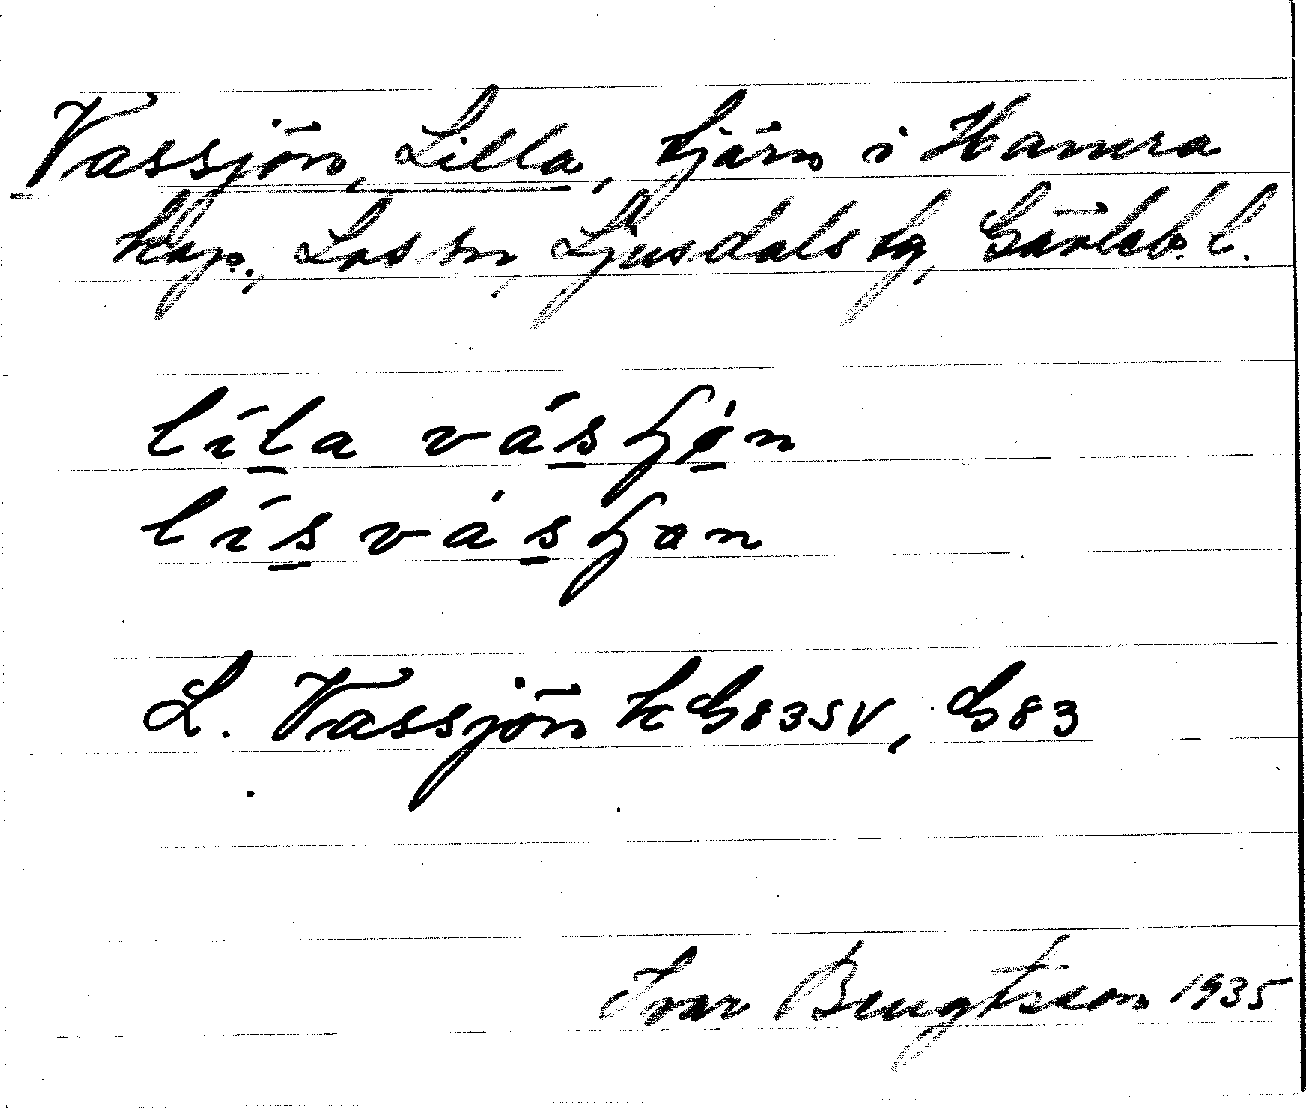 Vassjön, Lilla, tjärn i Hamra
kap., Los sn, Ljusdals tg, Gävleb. l.
líla vásʃø̇n
lísvásʃɑn
L. Vassjön k G83SV, G83
Ivar Bengtsson 1935